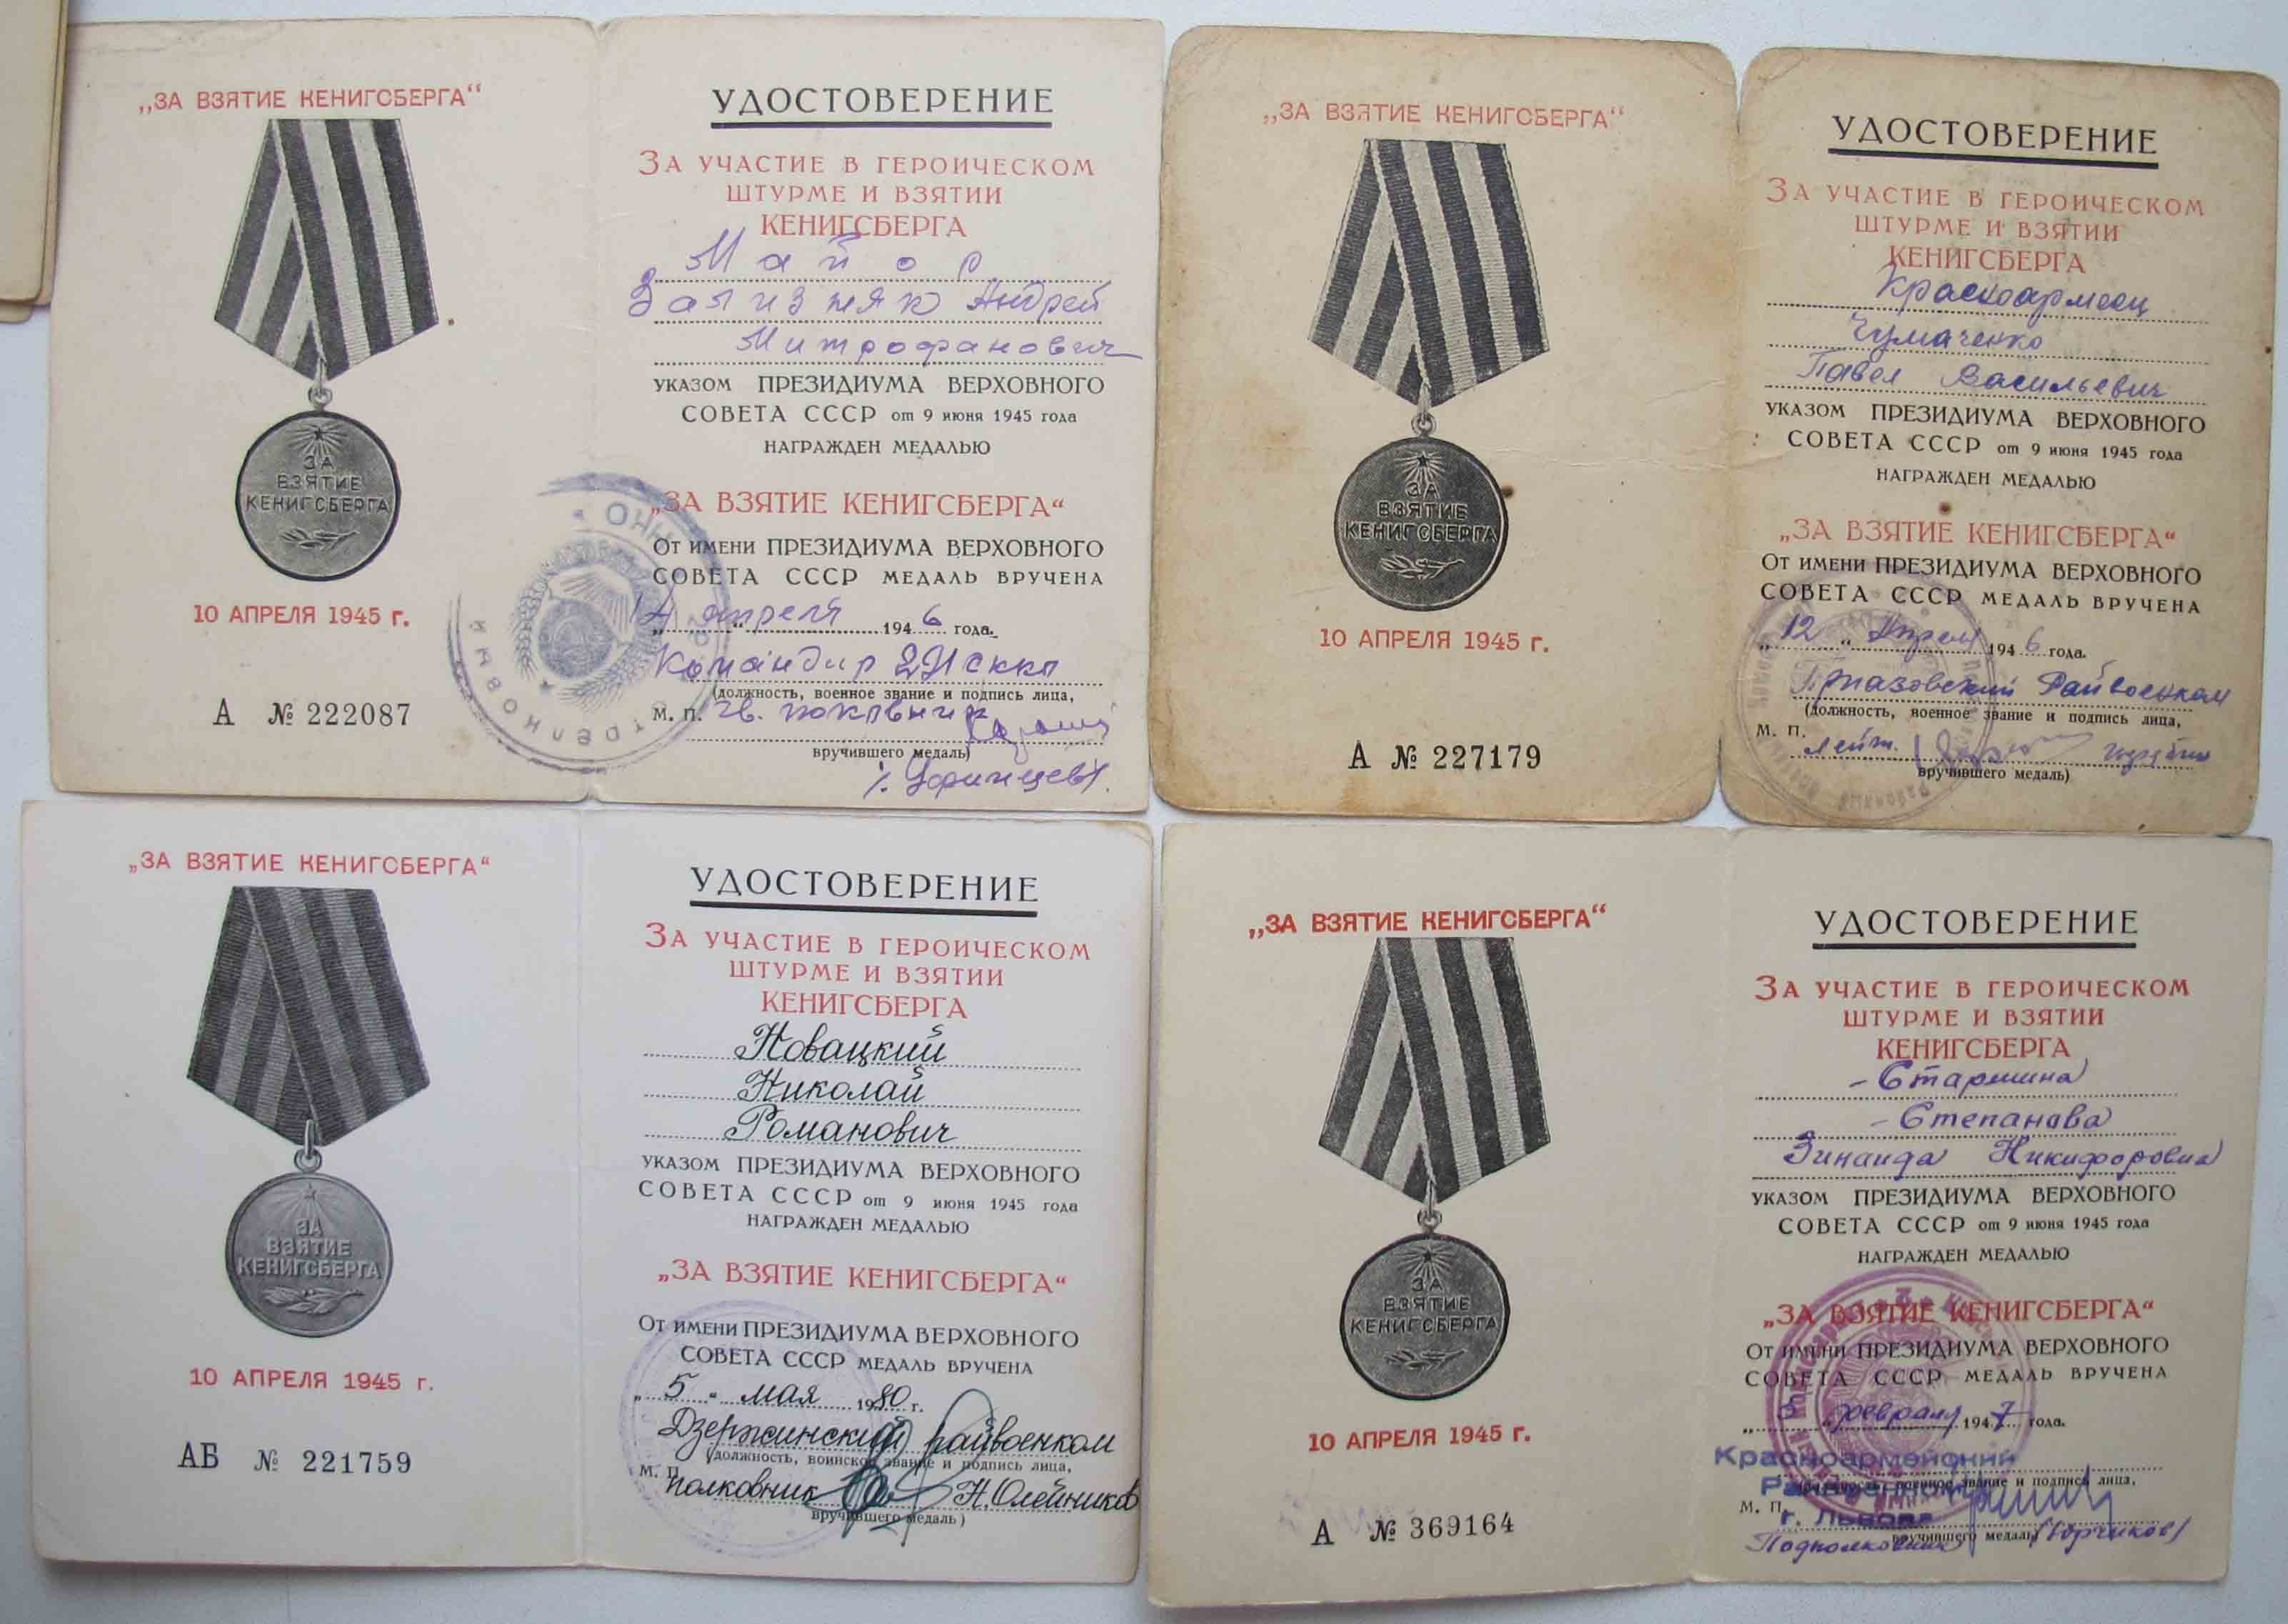 „ЗА ВЗЯТИЕ КЕНИГСБЕРГА“
ЗА
ВЗЯТИЕ
КЕНИГСБЕРГА
10 АПРЕЛЯ 1945 г.
А № 222087
УДОСТОВЕРЕНИЕ
ЗА УЧАСТИЕ В ГЕРОИЧЕСКОМ
ШТУРМЕ И ВЗЯТИИ
КЕНИГСБЕРГА
Майор
Зализняк Андрей
Митрофанович
УКАЗОМ ПРЕЗИДИУМА ВЕРХОВНОГО
СОВЕТА СССР от 9 июня 1945 года
НАГРАЖДЕН МЕДАЛЬЮ
„ЗА ВЗЯТИЕ КЕНИГСБЕРГА“
ОТ ИМЕНИ ПРЕЗИДИУМА ВЕРХОВНОГО
СОВЕТА СССР МЕДАЛЬ ВРУЧЕНА
апреля 1946 года.
Командир
(должность, военное звание и подпись лица,
М. П. гв. полковник
вручившего медаль)
„ЗА ВЗЯТИЕ КЕНИГСБЕРГА“
ЗА
ВЗЯТИЕ
КЕНИГСБЕРГА
10 АПРЕЛЯ 1945 г.
А № 227179
УДОСТОВЕРЕНИЕ
ЗА УЧАСТИЕ В ГЕРОИЧЕСКОМ
ШТУРМЕ И ВЗЯТИИ
КЕНИГСБЕРГА
Красноармеец
Чумаченко
Павел Васильевич
УКАЗОМ ПРЕЗИДИУМА ВЕРХОВНОГО
СОВЕТА СССР от 9 июня 1945 года
НАГРАЖДЕН МЕДАЛЬЮ
„ЗА ВЗЯТИЕ КЕНИГСБЕРГА“
ОТ ИМЕНИ ПРЕЗИДИУМА ВЕРХОВНОГО
СОВЕТА СССР МЕДАЛЬ ВРУЧЕНА
„12“ Апреля 1946 года.
Приазовский Райвоенком
(должность, военное звание и подпись лица,
М. П.
лейт.
вручившего медаль)
„ЗА ВЗЯТИЕ КЕНИГСБЕРГА“
ЗА
ВЗЯТИЕ
КЕНИГСБЕРГА
10 АПРЕЛЯ 1945 г.
АБ № 221759
УДОСТОВЕРЕНИЕ
ЗА УЧАСТИЕ В ГЕРОИЧЕСКОМ
ШТУРМЕ И ВЗЯТИИ
КЕНИГСБЕРГА
Новацкий
Николай
Романович
УКАЗОМ ПРЕЗИДИУМА ВЕРХОВНОГО
СОВЕТА СССР от 9 июня 1945 года
НАГРАЖДЕН МЕДАЛЬЮ
„ЗА ВЗЯТИЕ КЕНИГСБЕРГА“
ОТ ИМЕНИ ПРЕЗИДИУМА ВЕРХОВНОГО
СОВЕТА СССР МЕДАЛЬ ВРУЧЕНА
„5“ мая 1980 г.
Дзержинский райвоенком
(должность, воинское звание и подпись лица,
М. П.
полковник Н. Олейников
вручившего медаль)
„ЗА ВЗЯТИЕ КЕНИГСБЕРГА“
ЗА
ВЗЯТИЕ
КЕНИГСБЕРГА
10 АПРЕЛЯ 1945 г.
А № 369164
УДОСТОВЕРЕНИЕ
ЗА УЧАСТИЕ В ГЕРОИЧЕСКОМ
ШТУРМЕ И ВЗЯТИИ
КЕНИГСБЕРГА
- Старшина
- Степанова
Зинаида Никифоровна
УКАЗОМ ПРЕЗИДИУМА ВЕРХОВНОГО
СОВЕТА СССР от 9 июня 1945 года
НАГРАЖДЕН МЕДАЛЬЮ
„ЗА ВЗЯТИЕ КЕНИГСБЕРГА“
ОТ ИМЕНИ ПРЕЗИДИУМА ВЕРХОВНОГО
СОВЕТА СССР МЕДАЛЬ ВРУЧЕНА
„5“ февраля 1947 года.
Красноармейский
Райвоенком
звание и подпись лица,
М. П.
г. Львова
вручившего медаль)
Подполковник